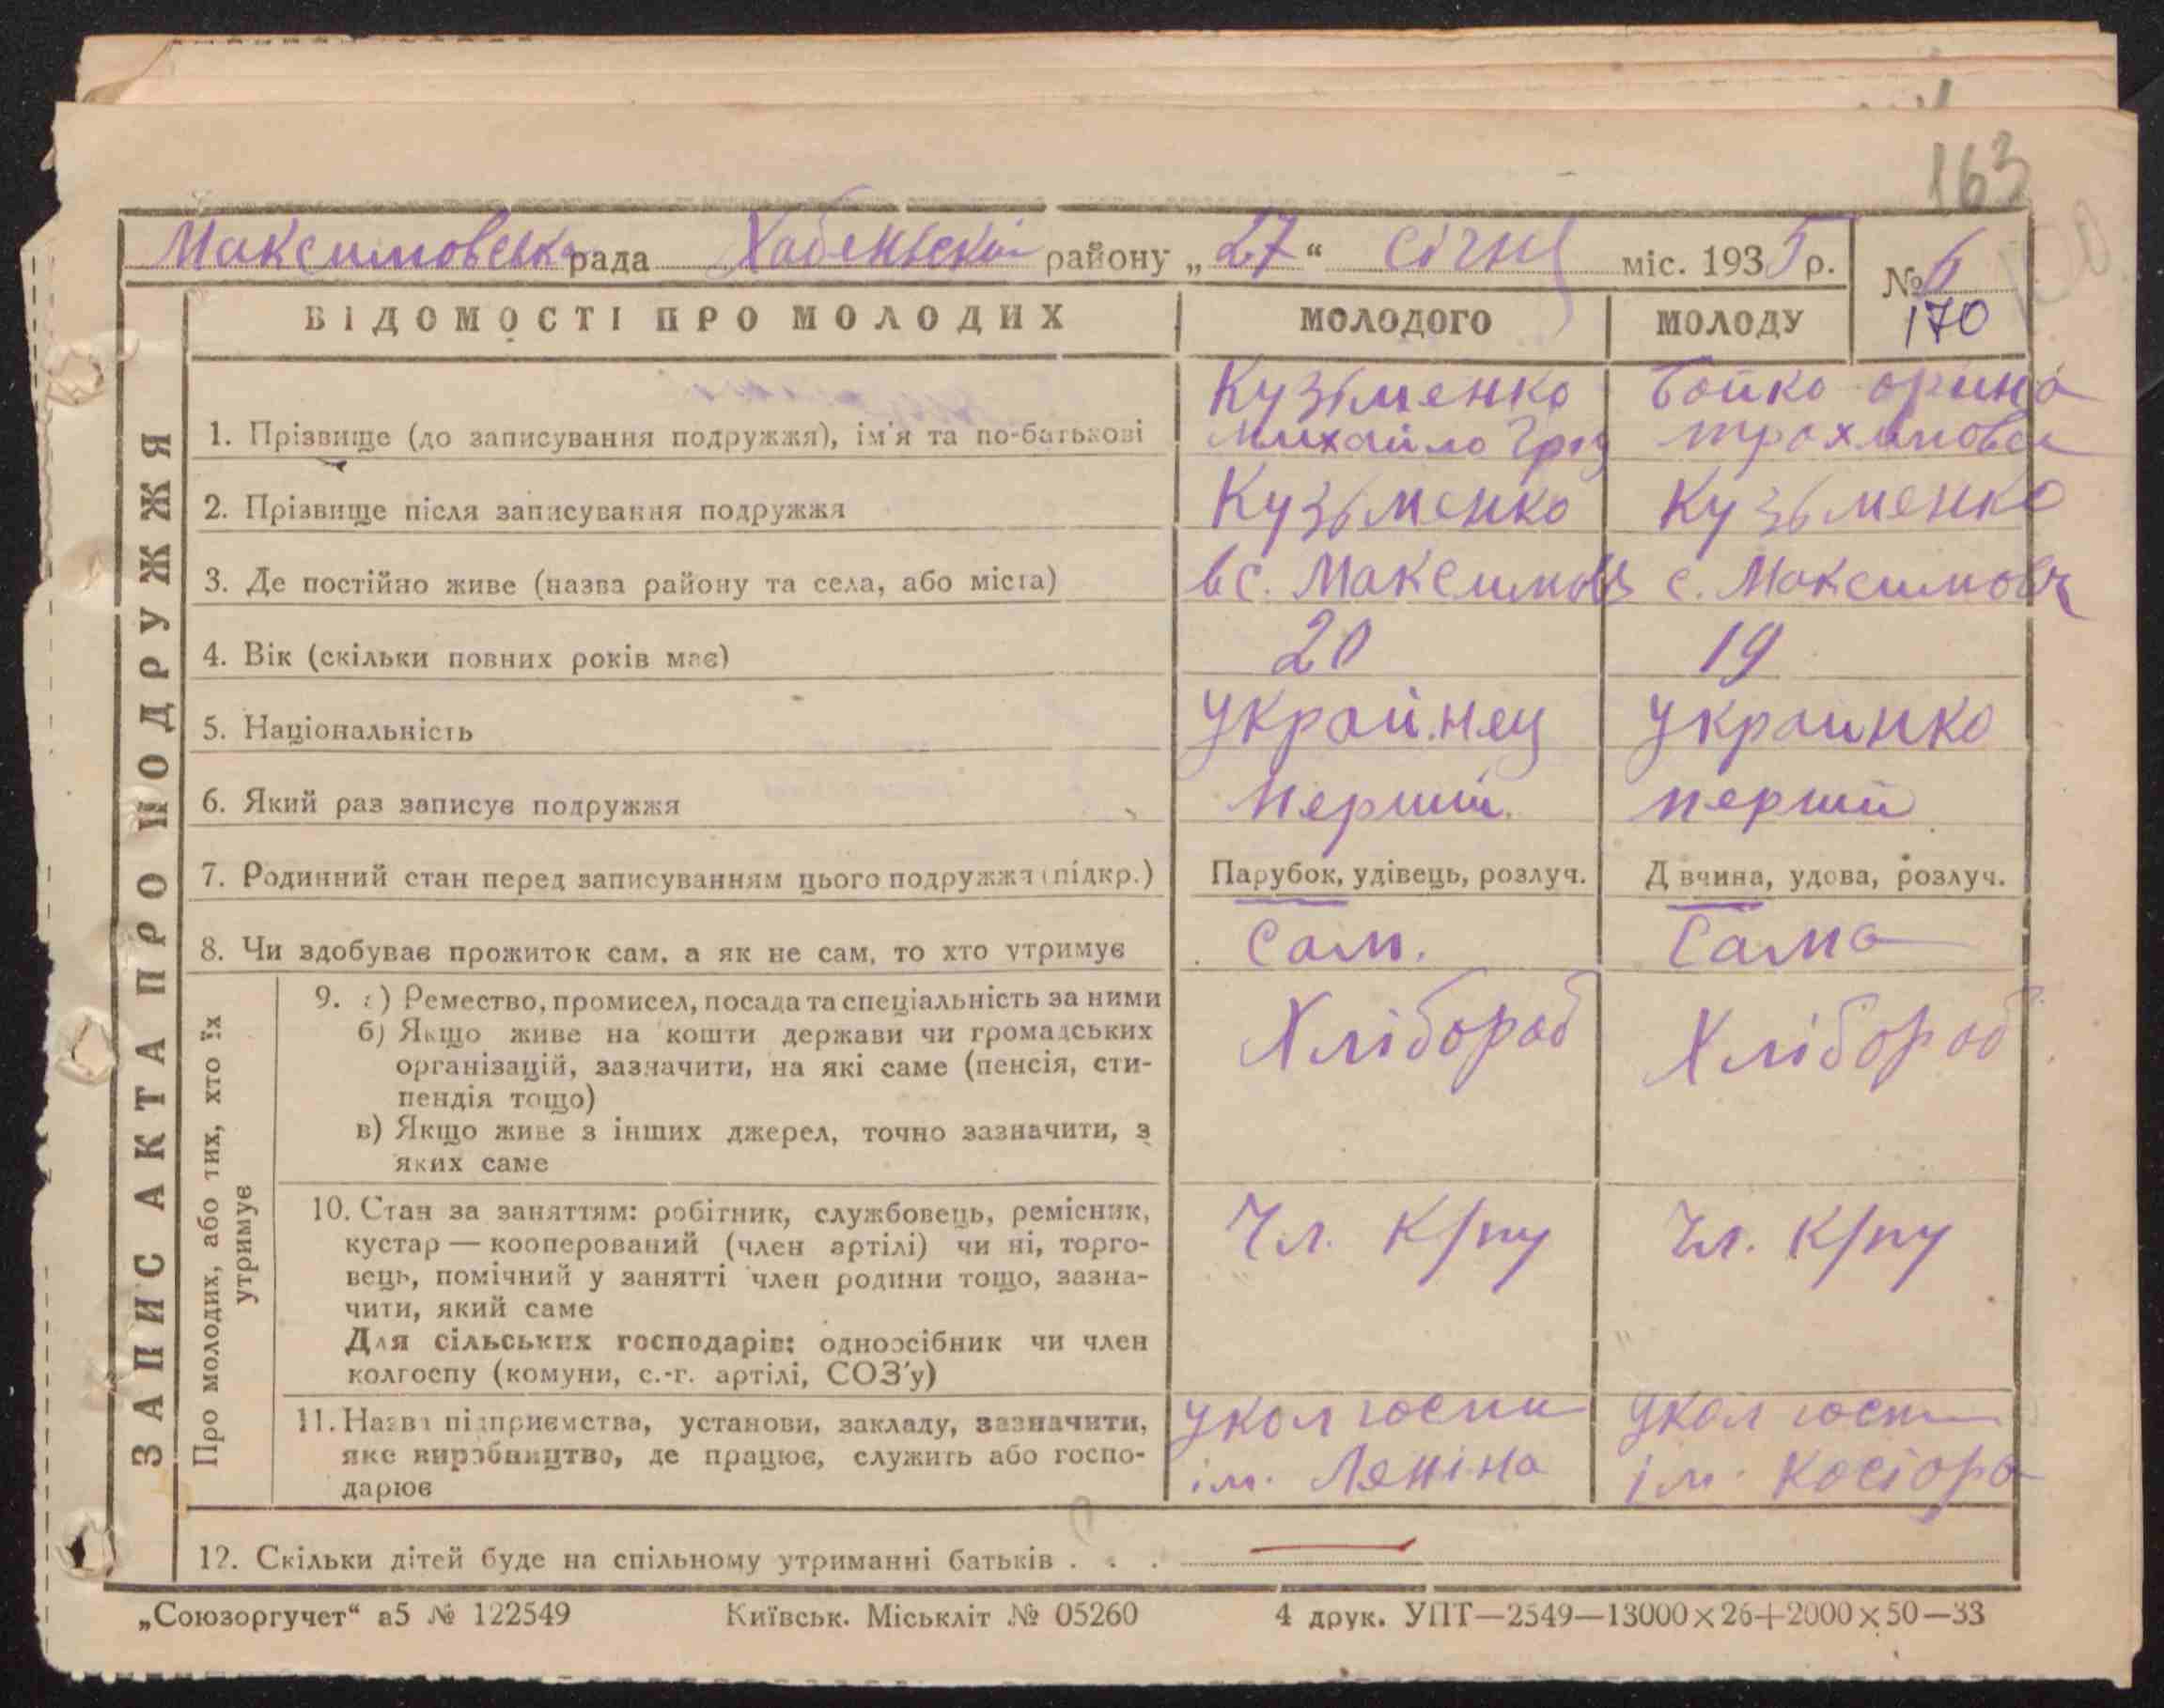 163
Максимовська рада Хабенської району „27“ січня міс. 1935 р. № 6
170
ВІДОМОСТІ ПРО МОЛОДИХ МОЛОДОГО МОЛОДУ
ЗАПИС АКТА ПРО ПОДРУЖЖЯ
1. Прізвище (до записування подружжя), ім'я та по-батькові
Кузьменко Михайло Григ
Бойко орина трохимовна
2. Прізвище після записування подружжя Кузьменко Кузьменко
3. Де постійно живе (назва району та села, або міста) в с. Максимов с. Максимов
4. Вік (скільки повних років має) 20 19
5. Національність Украйнец Украинка
6. Який раз записує подружжя Перший. перший
7. Родинний стан перед записуванням цього подружжя (підкр.) Парубок, удівець, розлуч. Д вчина, удова, розлуч.
8. Чи здобуває прожиток сам, а як не сам, то хто утримує Сам. Сама
Про молодих, або тих, хто їх
утримує
9. а) Ремество, промисел, посада та спеціальність за ними
б) Якщо живе на кошти держави чи громадських
організацій, зазначити, на які саме (пенсія, сти-
пендія тощо)
в) Якщо живе з інших джерел, точно зазначити, з
яких саме
Хлібороб Хлібороб
10. Стан за заняттям: робітник, службовець, ремісник,
кустар — кооперований (член артілі) чи ні, торго-
вець, помічний у занятті член родини тощо, зазна-
чити, який саме
Для сільських господарів: одноосібник чи член
колгоспу (комуни, с.-г. артілі, СОЗ'у)
Чл. к/пу Чл. к/пу
11. Назва підприємства, установи, закладу, зазначити,
яке виробництво, де працює, служить або госпо-
дарює
уколгоспи ім. Леніна
уколгосп ім. Косіора
12. Скільки дітей буде на спільному утриманні батьків . . . —
„Союзоргучет“ а5 № 122549 Київськ. Міськліт № 05260 4 друк. УПТ—2549—13000×26+2000×50—33